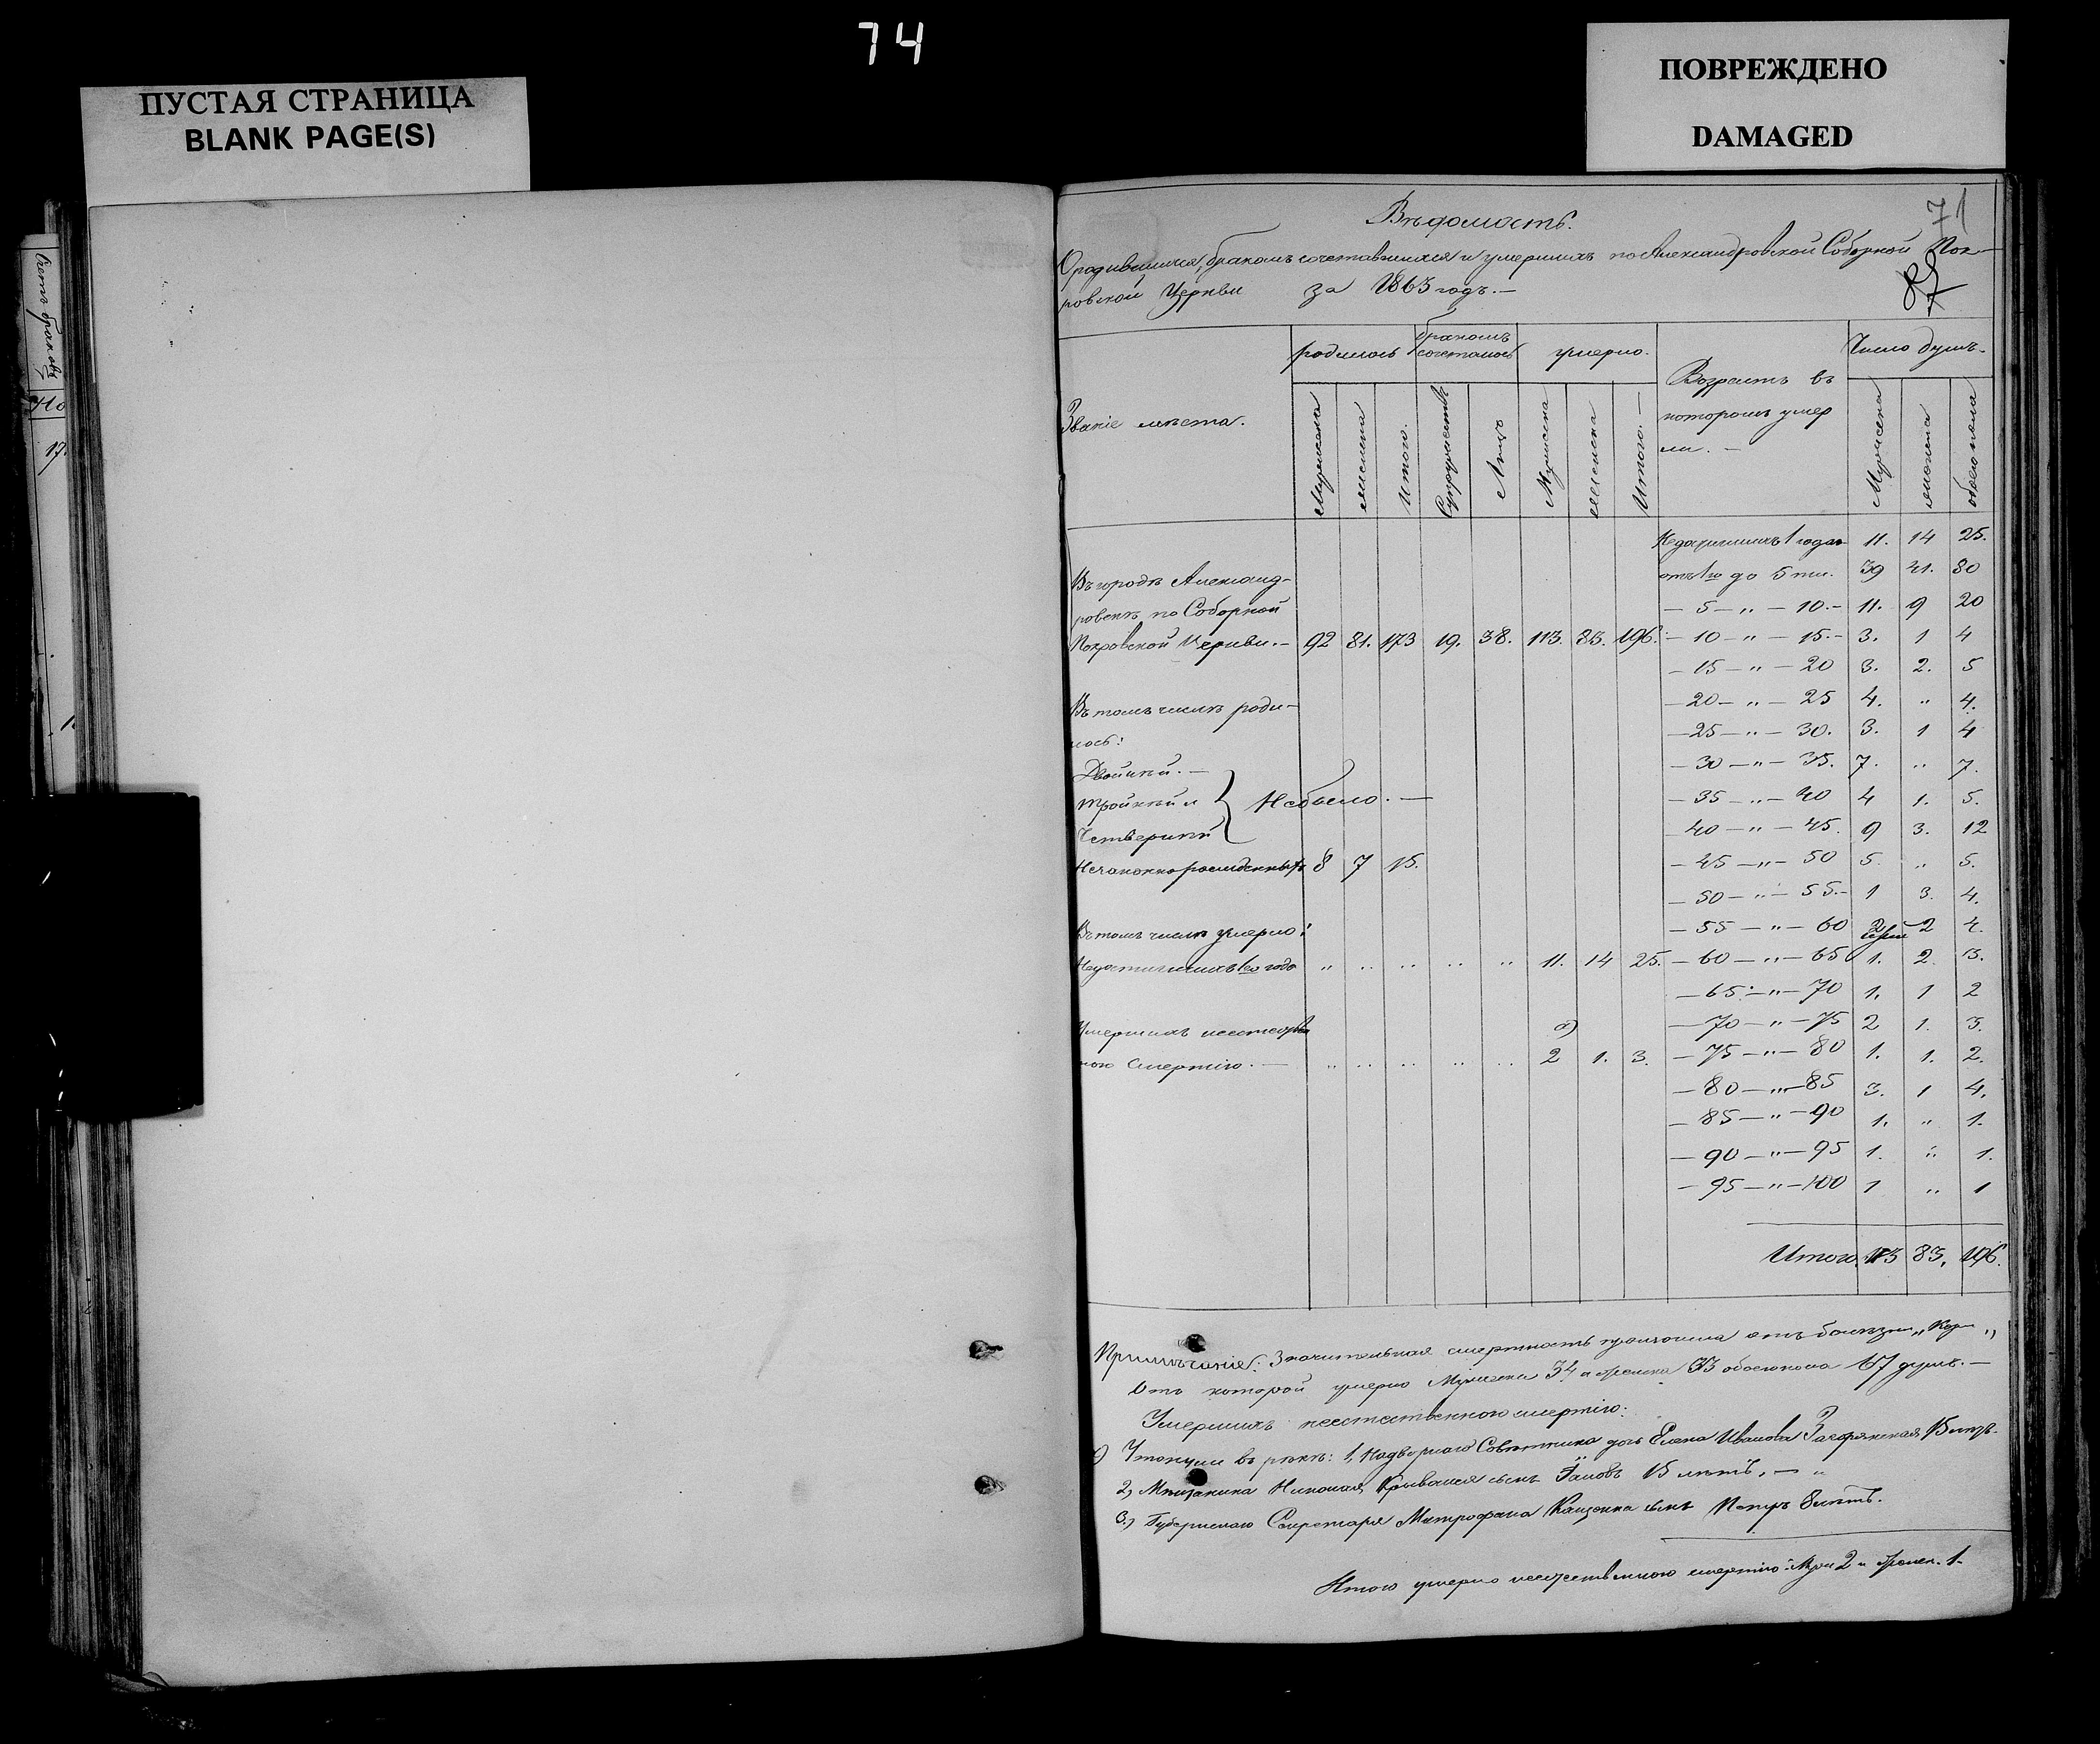 74
ПУСТАЯ СТРАНИЦА
BLANK PAGE(S)
ПОВРЕЖДЕНО
DAMAGED
71
Вѣдомость.
О родившихся, бракомъ сочетавшихся и умершихъ по Александровской Соборной Пок-
ровской Церкви за 1863 годъ. —
Званіе мѣста.
родилось
бракомъ сочеталось
умерло.
Возрастъ въ
которомъ умер
ли. —
Число душъ.
Мужеска
женска
Итого.
Супружествъ
Лицъ
Мужеска
женска
Итого. —
Мужеска
женска
обоего пола
Недожившихъ 1 года 11. 14 25.
отъ 1го до 5ти. 39 41. 80
Въ городѣ Александ-
— 5 — „ — 10. — 11. 9 20
ровскѣ по Соборной
Покровской Церкви. — 92 81. 173 19. 38. 113. 83. 196. — 10 — „ — 15. — 3. 1 4
— 15 — „ — 20 3. 2. 5
Въ томъ числѣ роди-
— 20 — „ — 25 4. „ 4.
лось:
— 25 — „ — 30. 3. 1 4
Двойни. —
— 30 — „ — 35. 7. „ 7.
Тройни и } Не было. —
— 35 — „ — 40 4 1. 5.
Четверни
— 40 — „ — 45. 9 3. 12
Незаконнорожденныхъ 8 7 15.
— 45 — „ — 50 5. „ 5.
— 50 — „ — 55. — 1 3. 4.
Въ томъ числѣ умерло:
— 55 — „ — 60 2 2 4.
Недостигшихъ 1го года „ „ „ „ „ 11. 14 25. — 60 — „ — 65 1. 2. 3.
— 65. — „ — 70 1. 1 2
Умершихъ неестествен
— 70 — „ — 75 2 1. 3.
ною смертію. — „ „ „ „ „ 2 1. 3. — 75 — „ — 80 1. 1. 2.
— 80 — „ — 85 3. 1 4.
— 85 — „ — 90 1. „ 1.
— 90 — „ — 95 1. „ 1.
— 95 — „ — 100 1 „ 1
Итого. 113 83, 196.
Примѣчаніе: Значительная смертность произошла отъ болѣзни „Кори„
Отъ которой умерло Мужеска 34 и Женска 33 обоего пола 67 душъ. —
Умершихъ неестественною смертію:
Утонули въ рѣкѣ: 1, Надворнаго Совѣтника дочь Елена Иванова 15 лѣтъ.
2, Мѣщанина Николая сынъ 15 лѣтъ, — „
3.) Губернскаго Секретаря Митрофана сынъ Петръ 8 лѣтъ.
Итого умерло неестественною смертію: Муж 2 и Женск. 1.